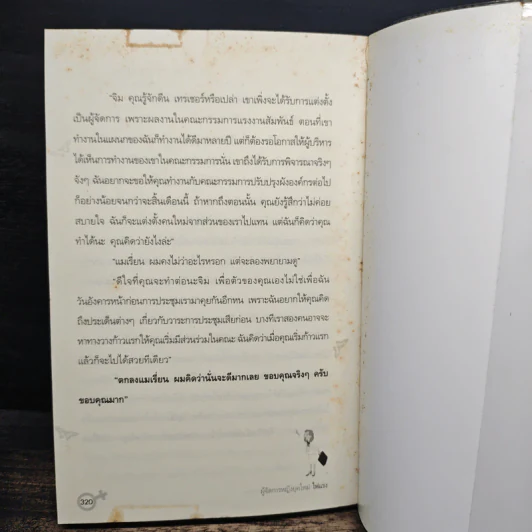 "จิม คุณรู้จักดีน เทรเชอร์หรือเปล่า เขาเพิ่งจะได้รับการแต่งตั้ง
เป็นผู้จัดการ เพราะผลงานในคณะกรรมการแรงงานสัมพันธ์ ตอนที่เขา
ทำงานในแผนกของฉันก็ทำงานได้ดีมาหลายปี แต่ก็ต้องรอโอกาสให้ผู้บริหาร
ได้เห็นการทำงานของเขาในคณะกรรมการนั่น เขาถึงได้รับการพิจารณาจริงๆ
จังๆ ฉันอยากจะขอให้คุณทำงานกับคณะกรรมการปรับปรุงผังองค์กรต่อไป
ก็อย่างน้อยจนกว่าจะสิ้นเดือนนี้ ถ้าหากถึงตอนนั้น คุณยังรู้สึกว่าไม่ค่อย
สบายใจ ฉันก็จะแต่งตั้งคนใหม่จากส่วนของเราไปแทน แต่ฉันก็คิดว่าคุณ
ทำได้นะ คุณคิดว่ายังไงล่ะ"
"แมเรี่ยน ผมคงไม่ว่าอะไรหรอก แต่จะลองพยายามดู"
"ดีใจที่คุณจะทำต่อนะจิม เพื่อตัวของคุณเองไม่ใช่เพื่อฉัน
วันอังคารหน้าก่อนการประชุมเรามาคุยกันอีกหน เพราะฉันอยากให้คุณคิด
ถึงประเด็นต่างๆ เกี่ยวกับวาระการประชุมเสียก่อน บางทีเราสองคนอาจจะ
หาทางวางก้าวแรกให้คุณเริ่มมีส่วนร่วมในคณะ ฉันคิดว่าเมื่อคุณเริ่มก้าวแรก
แล้วก็จะไปได้สวยทีเดียว"
"ตกลงแมเรี่ยน ผมคิดว่านั่นจะดีมากเลย ขอบคุณจริงๆ ครับ
ขอบคุณมาก"
320
ผู้จัดการหญิงยุคใหม่ ไฟแรง